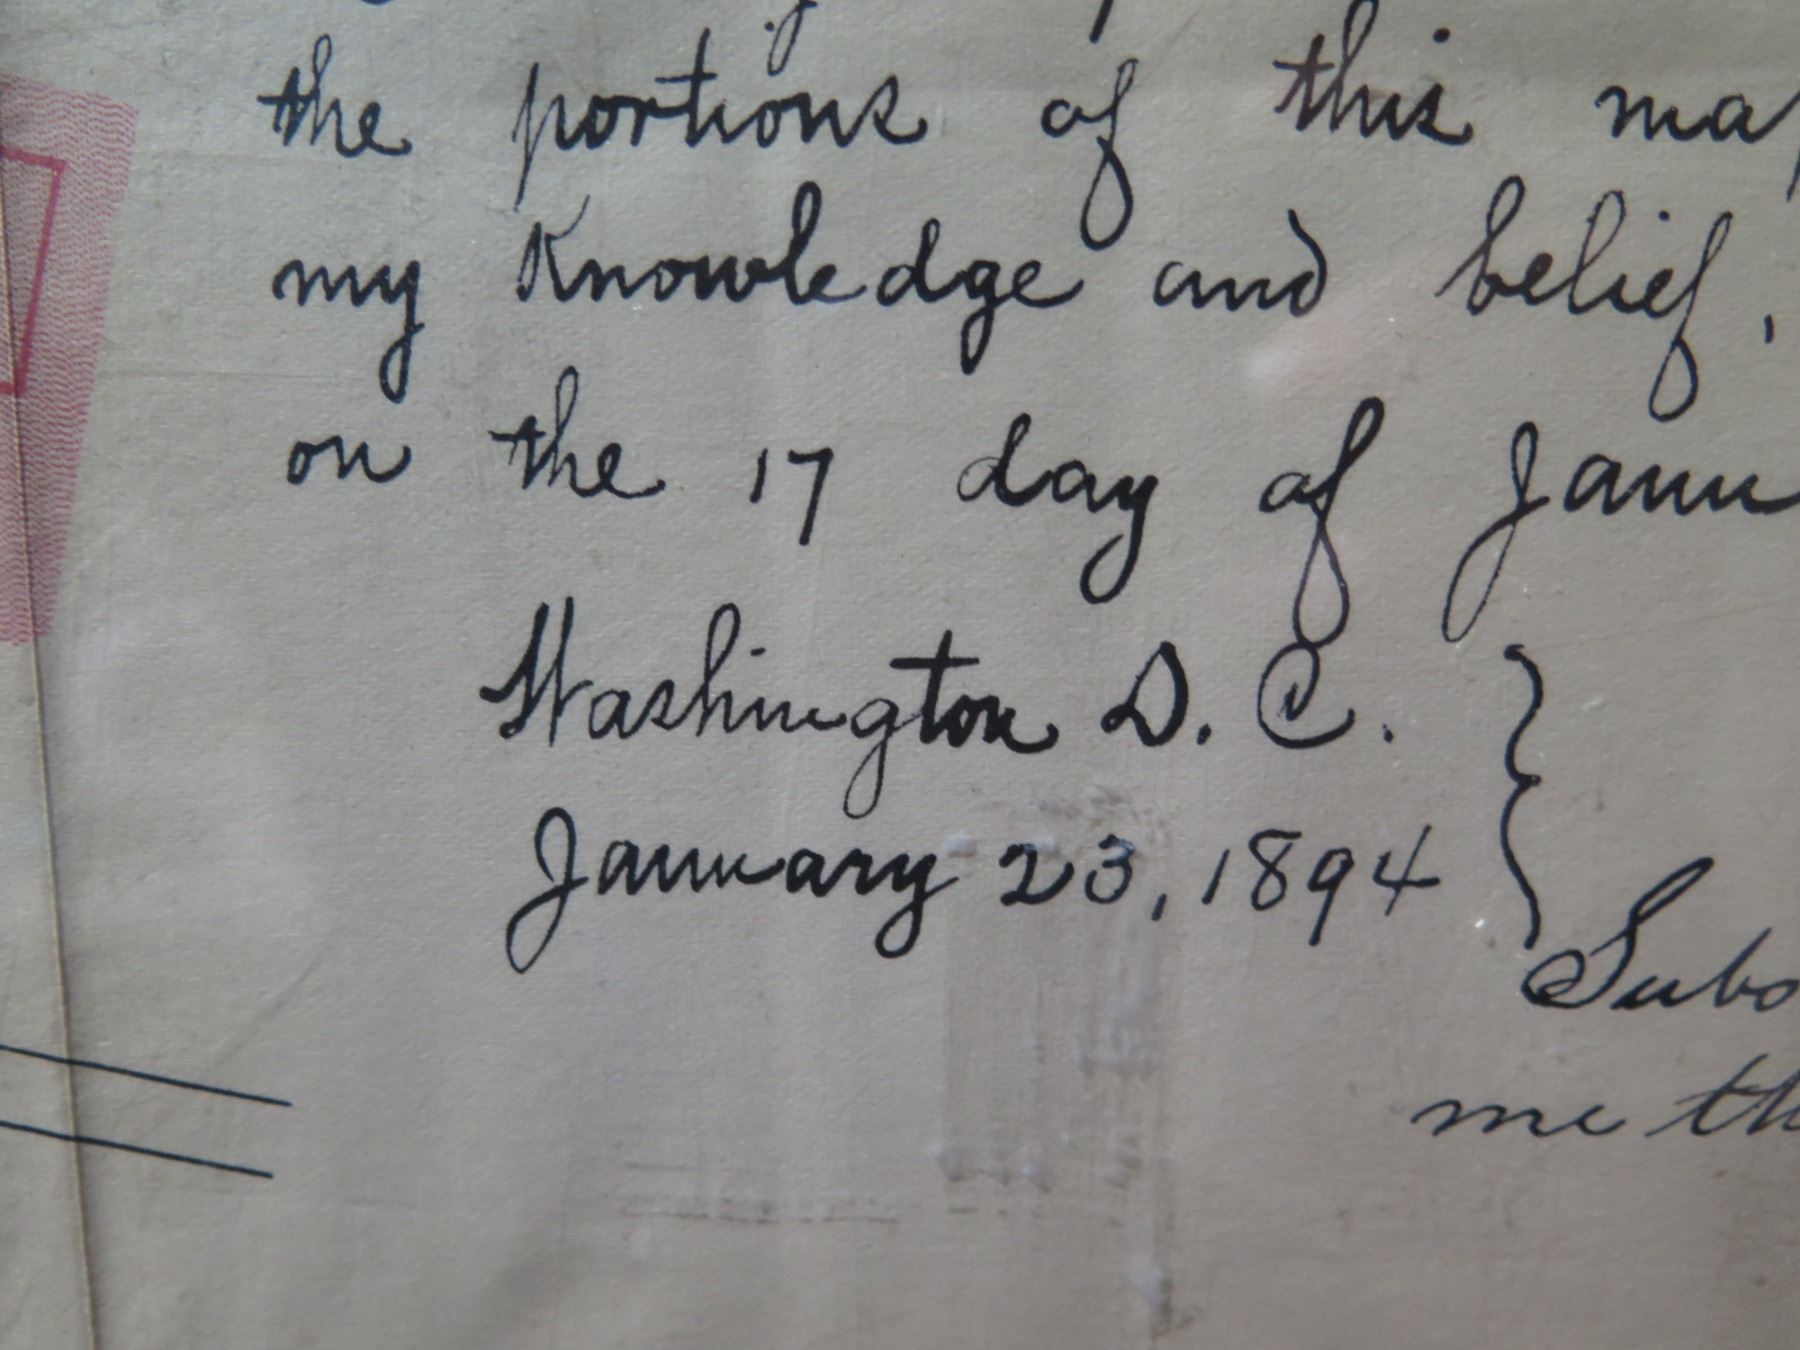 the portions of this map
my Knowledge and belief,
on the 17 day of Janu
Washington D. C.
January 23, 1894
Subs
me th